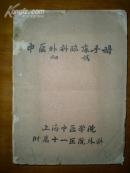 中医外科临床手册
初稿
上海中医学院
附属十一医院外科